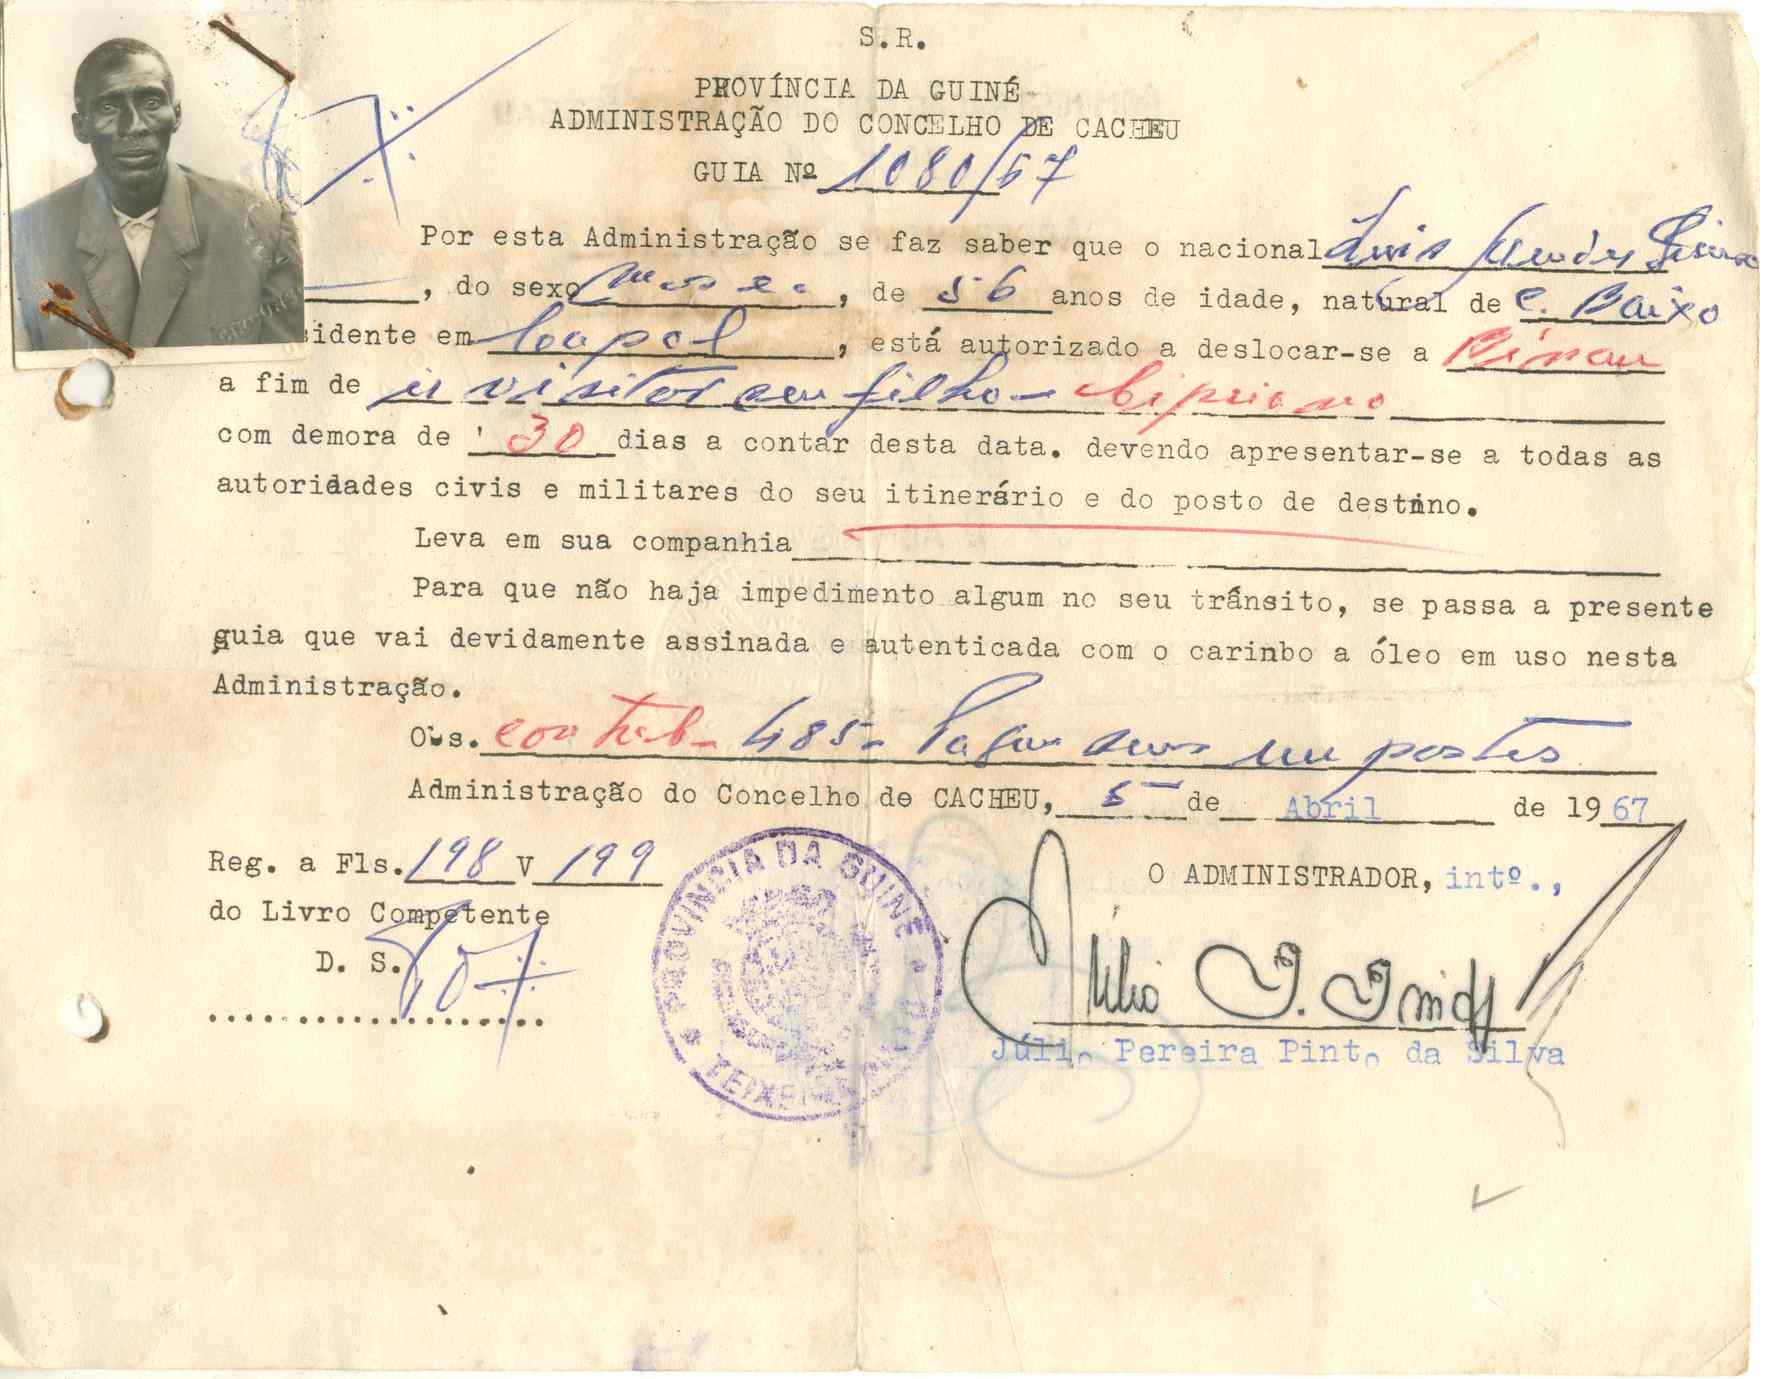 S.R.
PROVÍNCIA DA GUINÉ
ADMINISTRAÇÃO DO CONCELHO DE CACHEU
GUIA Nº 1080/67
Por esta Administração se faz saber que o nacional Luis Mendes
, do sexo masc. , de 56 anos de idade, natural de C. Baixo
sidente em Capol , está autorizado a deslocar-se a Binau
a fim de ir visitar seu filho - Cipriano
com demora de 30 dias a contar desta data. devendo apresentar-se a todas as
autoridades civis e militares do seu itinerário e do posto de destino.
Leva em sua companhia
Para que não haja impedimento algum no seu trânsito, se passa a presente
guia que vai devidamente assinada e autenticada com o carinbo a óleo em uso nesta
Administração.
Obs. contrib- 485- Pagou seus impostos
Administração do Concelho de CACHEU, 5 de Abril de 1967
Reg. a Fls. 198 V 199
do Livro Competente
D. S.
O ADMINISTRADOR, intº.,
Júlio Pereira Pinto da Silva
PROVÍNCIA DA GUINÉ
TEIXEIRA